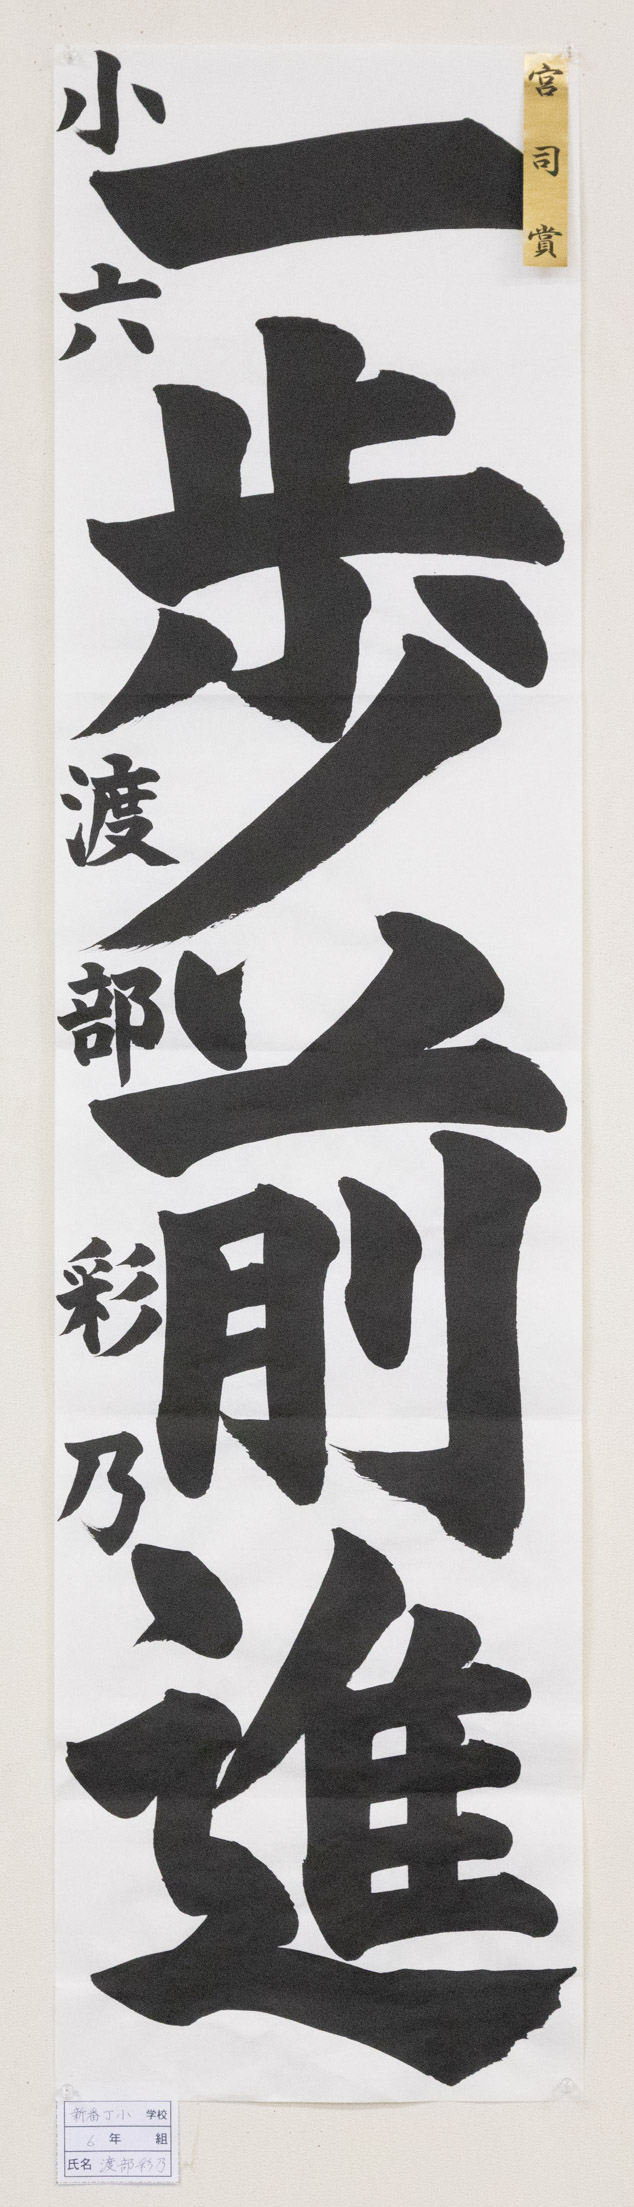 宮司賞
一歩前進
小六 渡部彩乃
新番丁小 学校
6 年 組
氏名 渡部彩乃